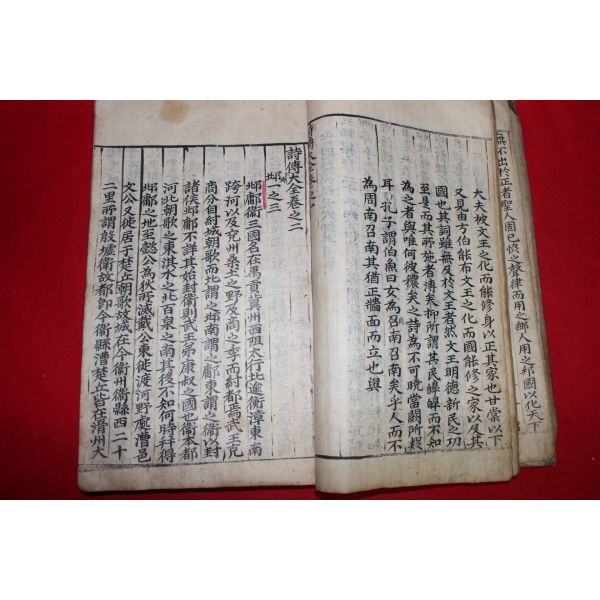 無不出於正者聖人固已恊之聲律而用之鄕人用之邦國以化天下
大夫被文王之化而能修身以正其家也甘棠以下
又見由方伯能布文王之化而國能修之家以及其
國也其詞雖無及於文王者然文王明德新民之功
至是而其所施者溥矣抑所謂其民皥皥而不知
為之者與唯何彼穠矣之詩為不可曉當闕所疑
耳孔子謂伯魚曰女為召南召南矣乎人而不
為周南召南其猶正牆面而立也與
詩傳大全卷之二
邶一之三
邶鄘衛三國名在禹貢冀州西阻太行北逾衡漳東南
跨河以及兗州桑土之野及商之季而紂都焉武王克
商分自紂城朝歌而北謂之邶南謂之鄘東謂之衛以封
諸侯邶鄘不詳其始封衛則武王弟康叔之國也衛本都
河北朝歌之東淇水之北百泉之南其後不知何時幷得
邶鄘之地至懿公為狄所滅戴公東徙渡河野處漕邑
文公又徙居于楚丘朝歌故城在今衛州衛縣西二十
二里所謂殷墟衛故都即今衛縣漕楚丘皆在滑州大